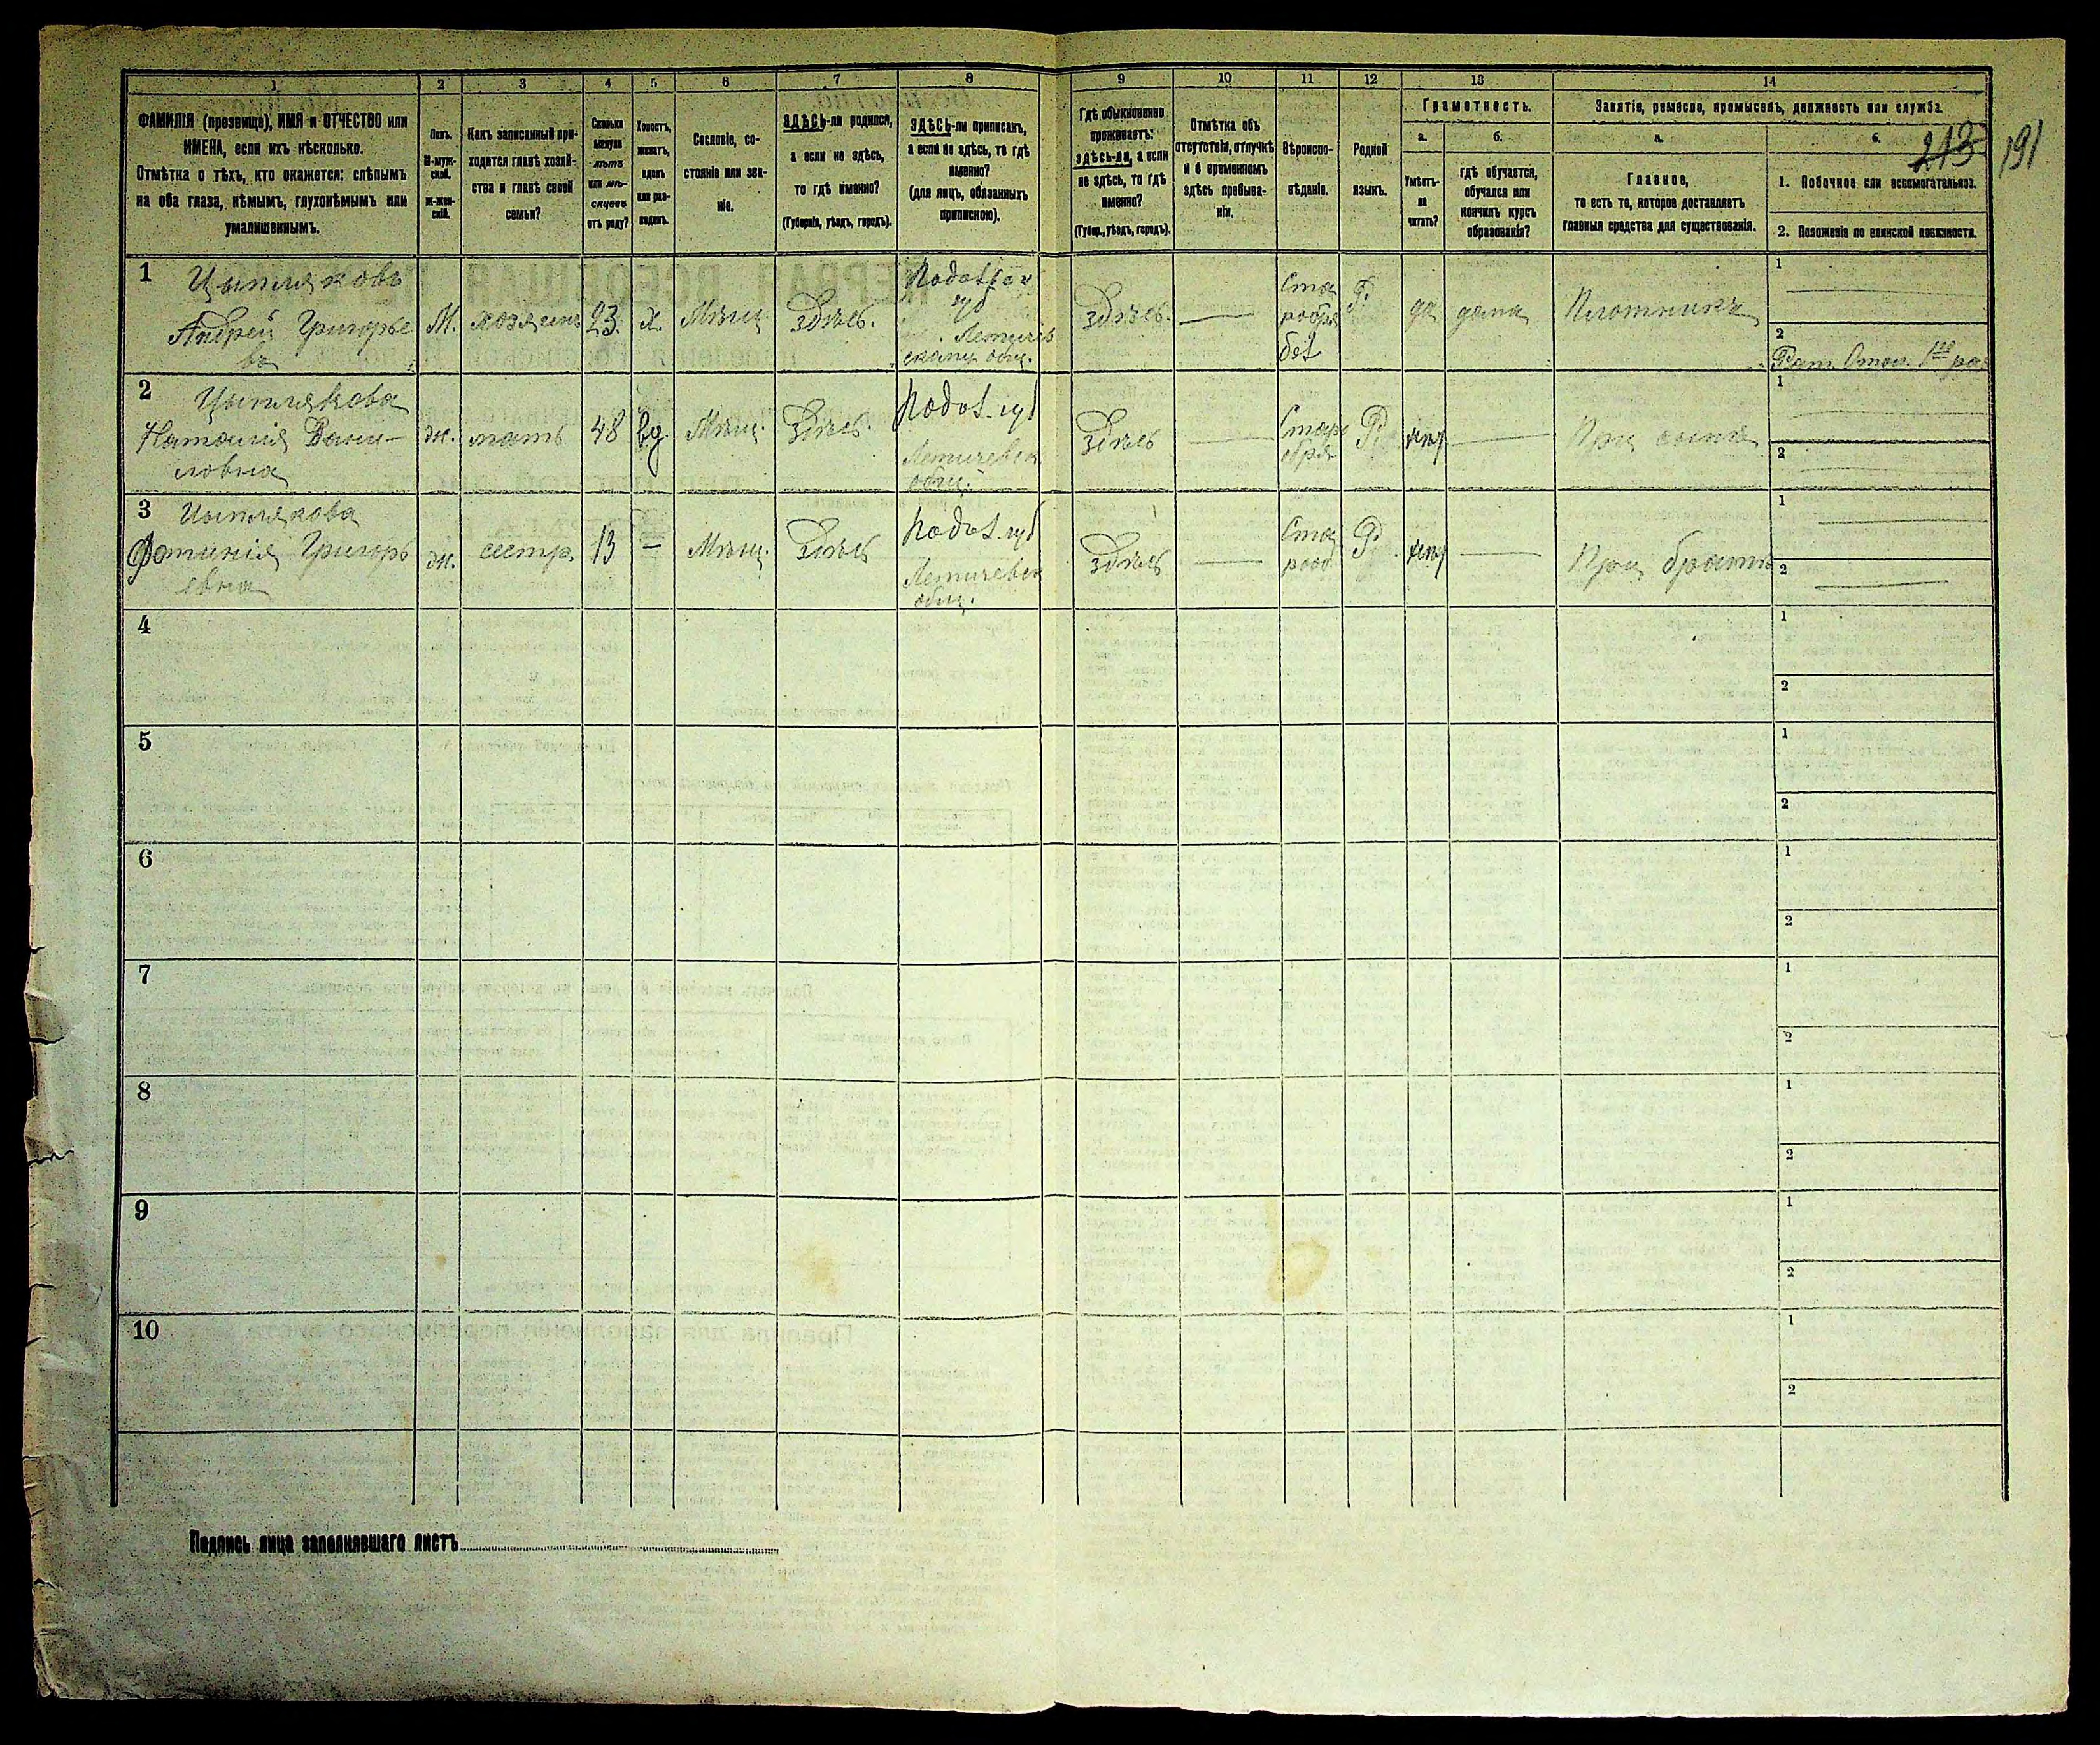 1
2
3
4
5
6
7
8
9
10
11
12
13
14
ФАМИЛІЯ (прозвище), ИМЯ и ОТЧЕСТВО или
ИМЕНА, если ихъ нѣсколько.
Отмѣтка о тѣхъ, кто окажется: слѣпымъ
на оба глаза, нѣмымъ, глухонѣмымъ или
умалишеннымъ.
Полъ.
М-муж-
ской.
ж-жен-
скій.
Какъ записанный при-
ходится главѣ хозяй-
ства и главѣ своей
семьи?
Сколько
минуло
лѣтъ
или мѣ-
сяцевъ
отъ роду?
Холостъ,
женатъ,
вдовъ
или раз-
веденъ.
Сословіе, со-
стояніе или зва-
ніе.
ЗДѢСЬ-ли родился,
а если не здѣсь,
то гдѣ именно?
(Губернія, уѣздъ, городъ).
ЗДѢСЬ-ли приписанъ,
а если не здѣсь, то гдѣ
именно?
(для лицъ, обязанныхъ
припискою).
Гдѣ обыкновенно
проживаетъ:
здѣсь-ли, а если
не здѣсь, то гдѣ
именно?
(Губер., уѣздъ, городъ).
Отмѣтка объ
отсутствіи, отлучкѣ
и о временномъ
здѣсь пребыва-
ніи.
Вѣроиспо-
вѣданіе.
Родной
языкъ.
Грамотность.
а.
Умѣетъ-
ли
читать?
б.
гдѣ обучается,
обучался или
кончилъ курсъ
образованія?
Занятіе, ремесло, промыселъ, должность или служба.
а.
Главное,
то есть то, которое доставляетъ
главныя средства для существованія.
б.
213
191
1. Побочное или вспомогательное.
2. Положеніе по воинской повинности.
1 Цыпляковъ
Андрей Григорье
въ
М.
хозяинъ
23.
х.
Мѣщ.
Здѣсь.
губ
общ.
Здѣсь.
Ста
рообря
Р.
да
дома
Плотникъ
1
2
Рат. Опол. 1го раз
2 Цыплякова
Наталія Дани-
ловна
ж.
мать
48
вд.
Мѣщ.
Здѣсь.
Подол. губ
Летичевск
общ.
Здѣсь
Старо
обря
Р.
нѣт
При сынѣ
1
2
3 Цыплякова
Фотинія Григорь
евна
ж.
сестр.
13
—
Мѣщ.
Здѣсь
Подол. губ
Летичевск
общ.
Здѣсь
Ста
рооб
Р.
нѣт
При братѣ
1
2
4
1
2
5
1
2
6
1
2
7
1
2
8
1
2
9
1
2
10
1
2
Подпись лица заполнявшаго листъ